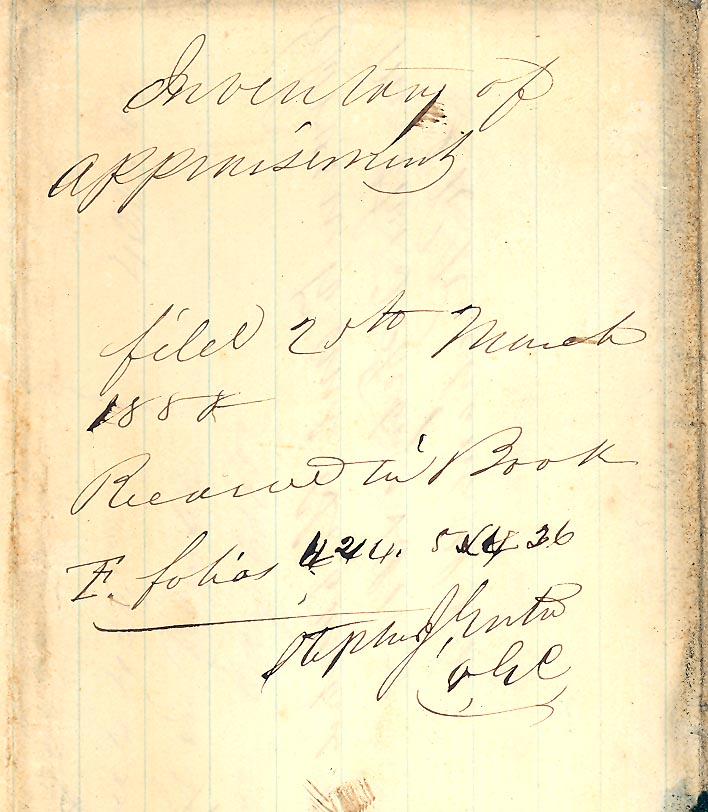 Inventory of
appraisement
filed 20th March
1888
Recorded in Book
F. folios 424. 5 436
Stephen J